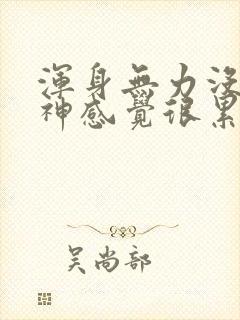 渾身無力沒
神感覺很累
吳尚部